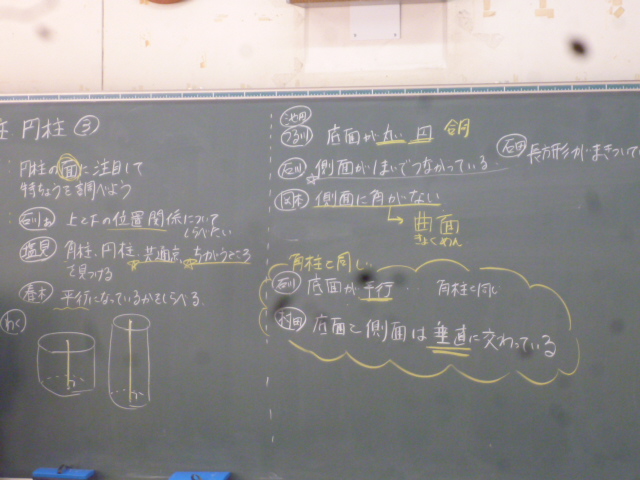 柱 円柱 ③
円柱の面に注目して
特ちょうを調べよう
上と下の位置関係について
しらべたい
塩見 角柱、円柱、共通点、ちがうところ
を見つける
平行になっているかをしらべる
池田
底面が丸い 円 合同
石川 側面が1まいでつながっている。
側面に角がない
曲面
きょくめん
石田 長方形がまきついてい
角柱と同じ
石川 底面が平行 角柱と同じ
村田 底面と側面は垂直に交わっている